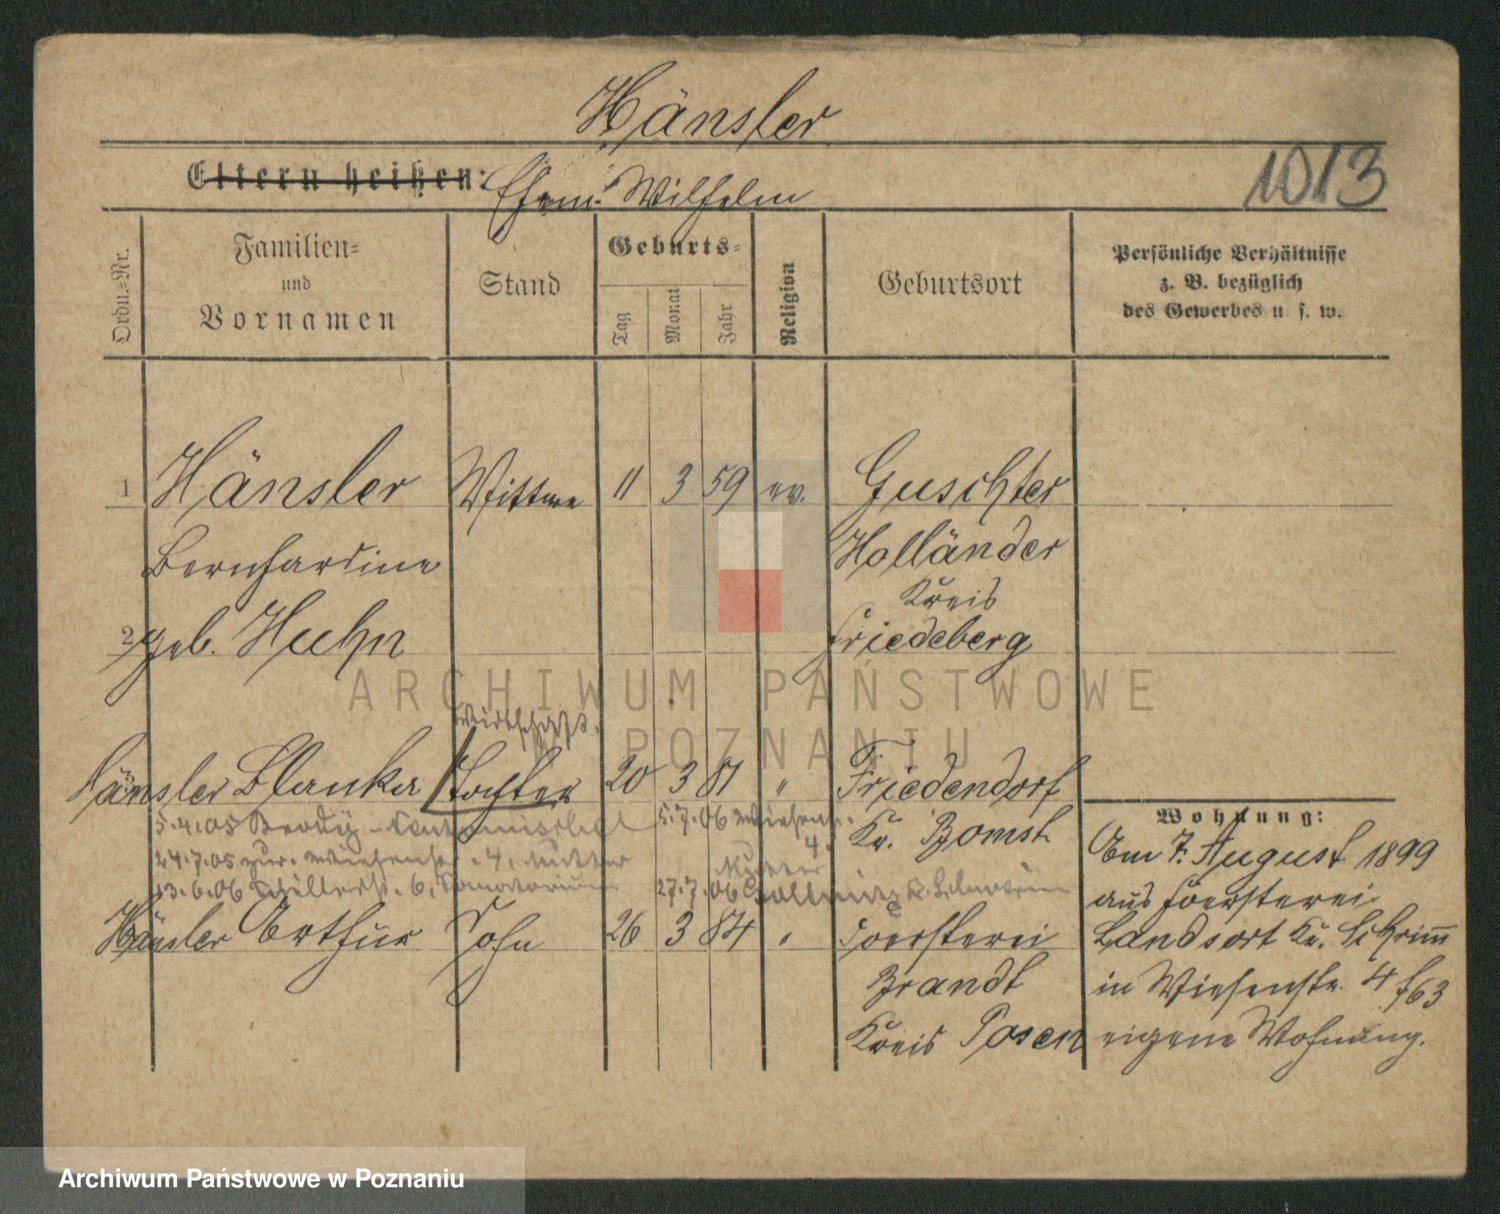 Hänsler
Eltern heißen: Ehem. Wilhelm
1013
Ordn.-Nr.
Familien-
und
Vornamen
Stand
Geburts-
Tag
Monat
Jahr
Religion
Geburtsort
Persönliche Verhältnisse
z. B. bezüglich
des Gewerbes u. s. w.
1 Hänsler Wittwe 11 3 59 ev. Guschter
Bernhardine Holländer
Kreis
2 geb. Huhn Friedeberg
ARCHIWUM PAŃSTWOWE
W POZNANIU
Wirthschaft.
Hänsler Blanka Tochter 20 3 81 " Friedendorf
5.4.05 5.7.06 Wiesenstr. Kr. Bomst
4.
24.7.05 zur. Wiesenstr. 4, Mutter
13.6.06 Schillerstr. 6, Sanatorium 27.7.06
Hänsler Arthur Sohn 26 3 84 " Foersterei
Brandt
Kreis Posen
Wohnung:
Am 7. August 1899
aus Foersterei
Landsort Kr. Schrimm
in Wiesenstr. 4 f63
eigene Wohnung.
Archiwum Państwowe w Poznaniu